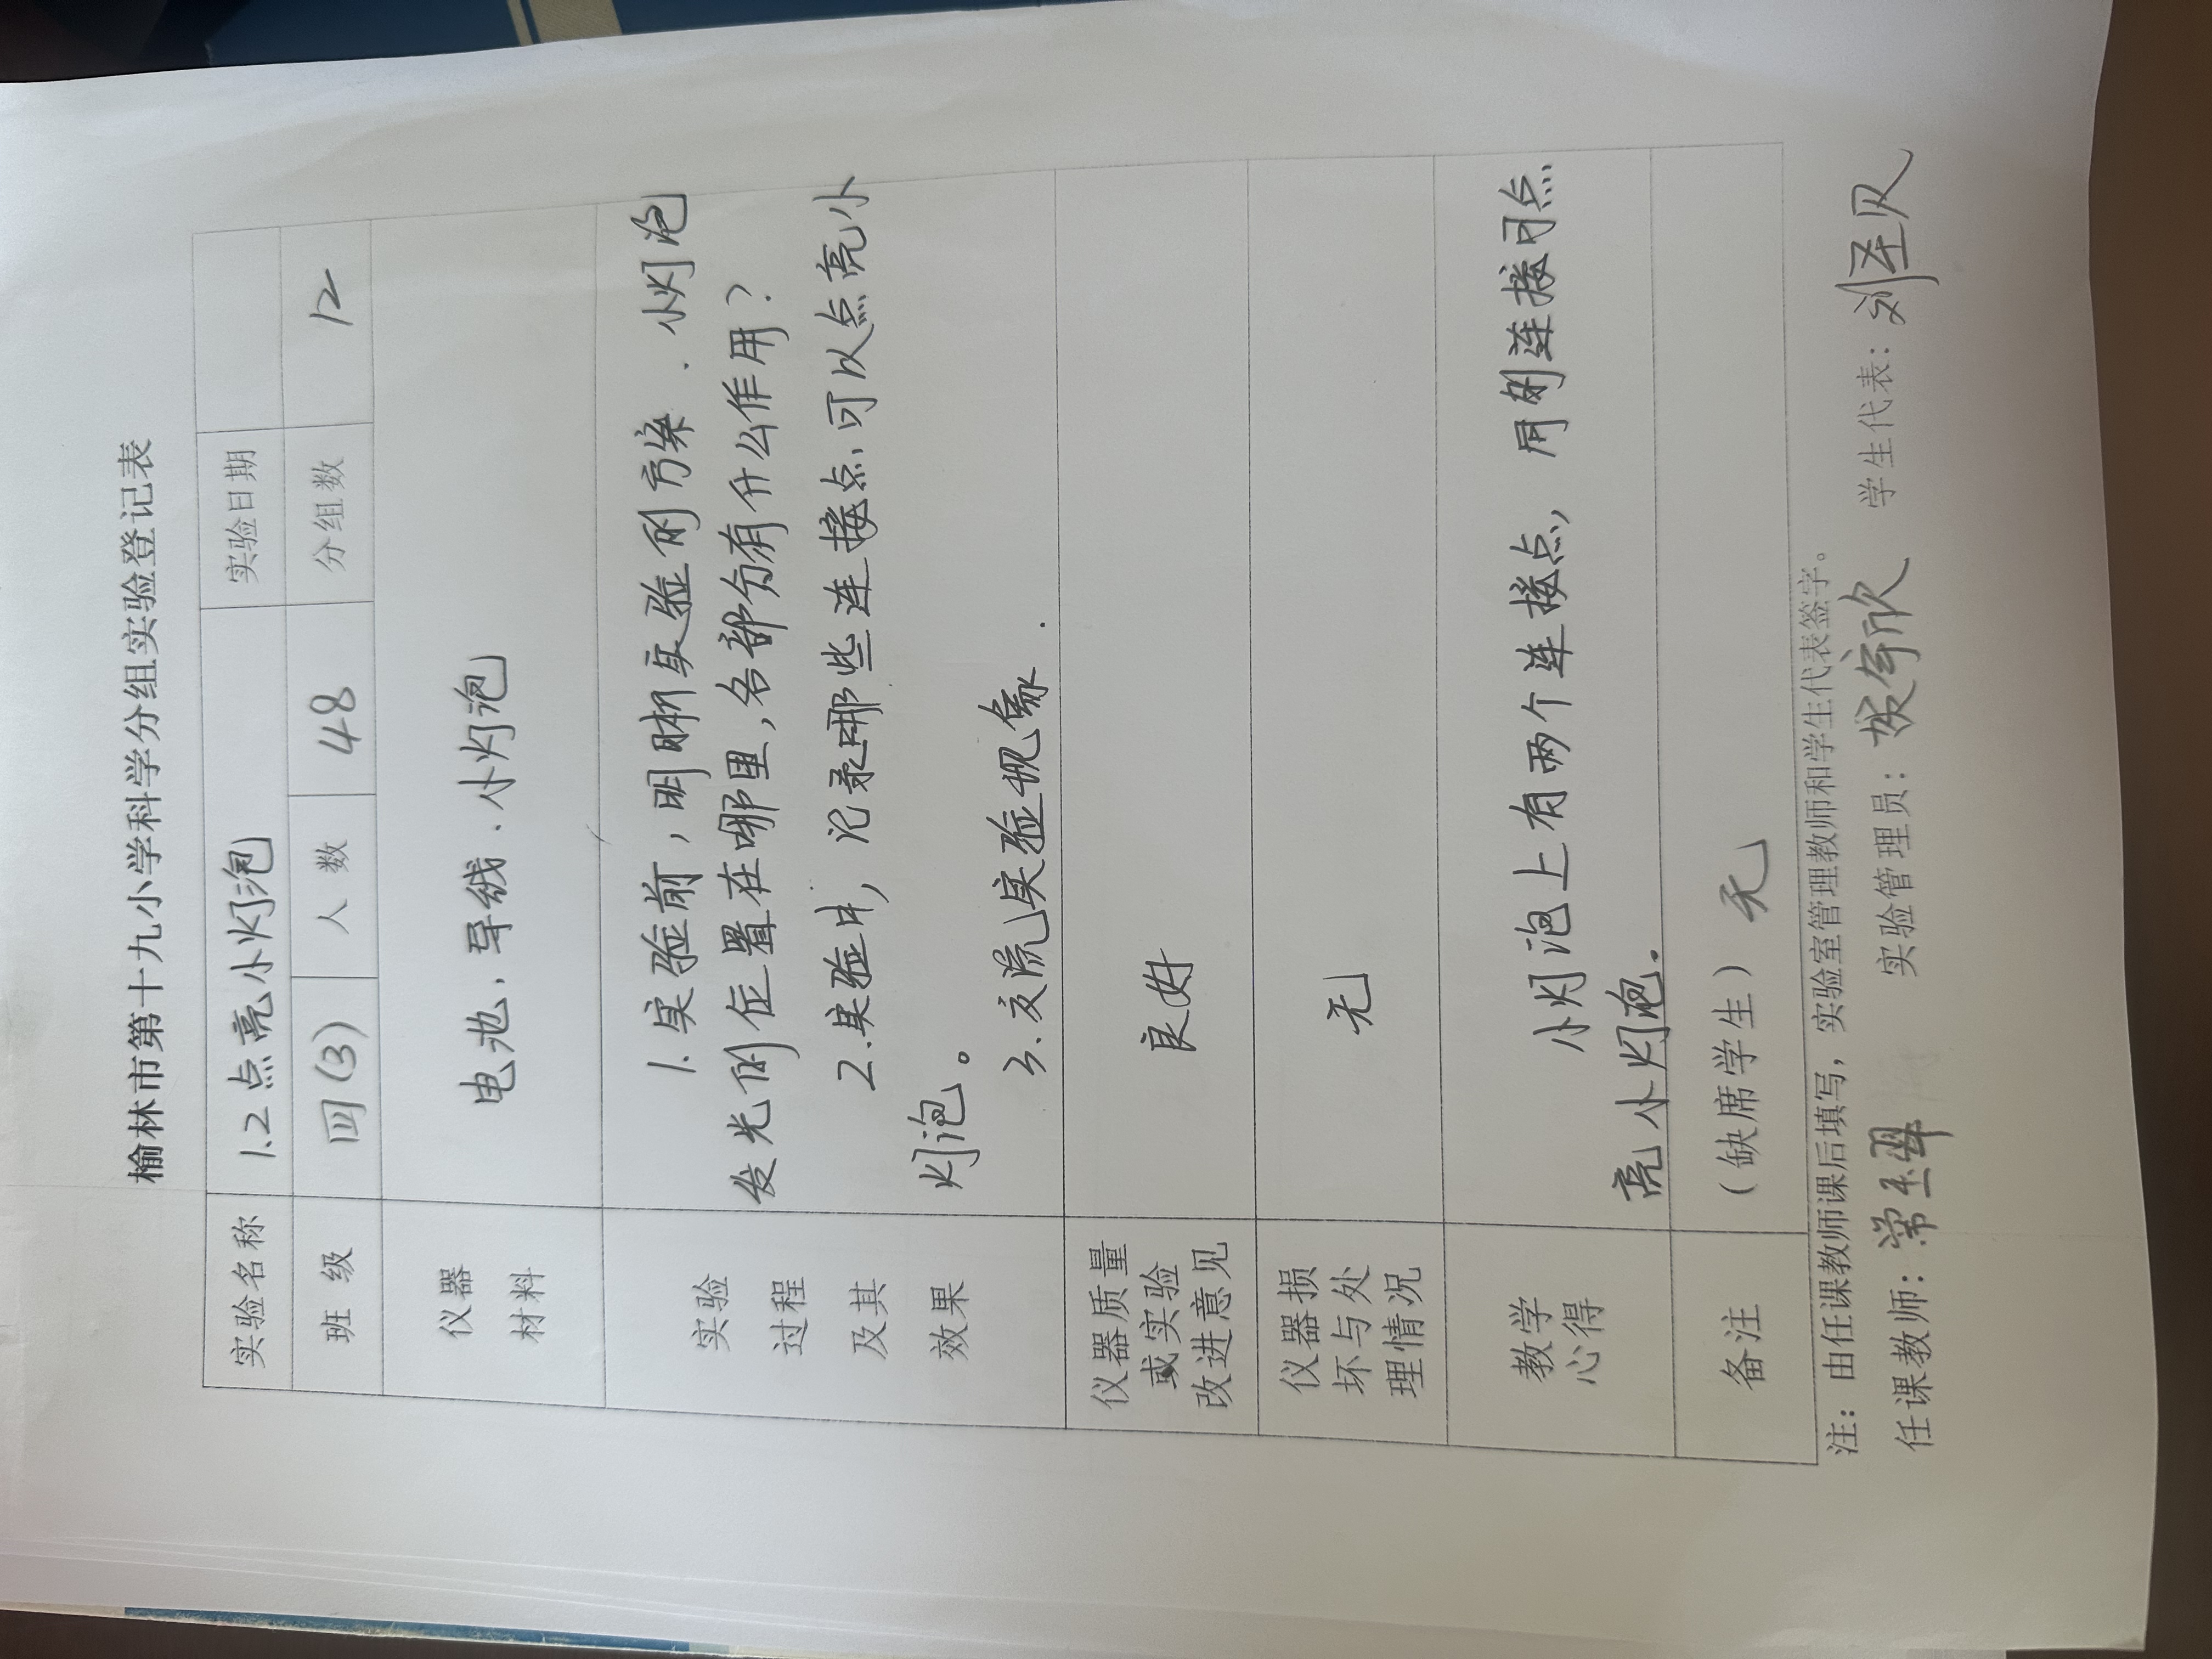 榆林市第十九小学科学分组实验登记表
实验名称 1.2点亮小灯泡 实验日期
班 级 四(3) 人 数 48 分组数 12
仪器 材料 电池、导线、小灯泡
实验 过程 及其 效果
1.实验前，明确实验的方案、小灯泡
发光的位置在哪里，各部分有什么作用？
2.实验中，记录哪些连接点可以点亮小
灯泡。
3.交流实验现象.
仪器质量 或实验 改进意见 良好
仪器损 坏与处 理情况 无
教学 心得
小灯泡上有两个连接点，用连接可点
亮小灯泡.
备注 (缺席学生) 无
注：由任课教师课后填写，实验室管理教师和学生代表签字。
任课教师：常 实验管理员： 学生代表：刘圣贝